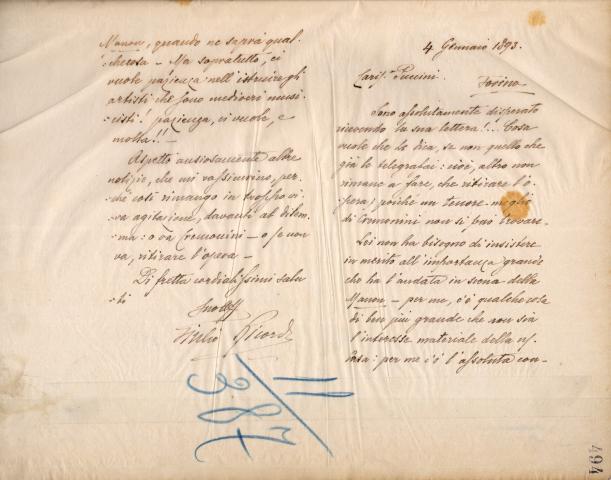 4 Gennaio 1893.
Cariss.º Puccini.
Torino
Sono assolutamente disperato
ricevendo la sua lettera!.. Cosa
vuole che Le dica, se non quello che
già le telegrafai: cioè, altro non
rimane a fare, che ritirare l'o-
pera; poiché un tenore meglio
di Cremonini non si può trovare.
Lei non ha bisogno di insistere
in merito all'importanza grande
che ha l'andata in scena della
Manon - per me, c'è qualche cosa
di ben più grande che non sia
l'interesse materiale della
: per me c'è l'assoluta con-
Manon, quando ne saprà qual-
checosa - Ma sopratutto, ci
vuole pazienza nell'istruire gli
artisti che sono mediocri musi-
cisti! pazienza, ci vuole, e
molta!! -
Aspetto ansiosamente altre
notizie, che mi rassicurino, per-
ché così rimango in troppo vi-
va agitazione, davanti al dilem-
ma: o va Cremonini - o se non
va, ritirare l'opera -
Di fretta cordialissimi salu-
ti
Suo
Giulio Ricordi
11/387
494